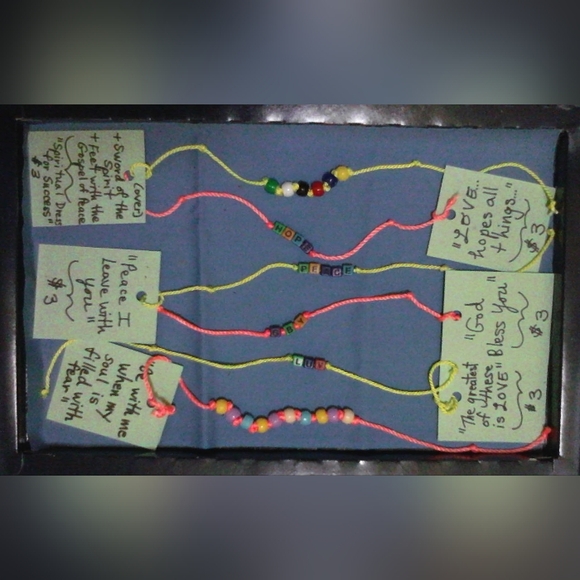 (over)
+ Sword of the
Spirit
+ Feet with the
Gospel of Peace
"Spiritual Dress
for Success"
$3
"LOVE...
hopes all
things..."
$3
HOPE
"Peace I
Leave with
you"
$3
PEACE
"God
Bless You"
$3
"The greatest
of these
is LOVE"
$3
with me
when my
soul is
filled with